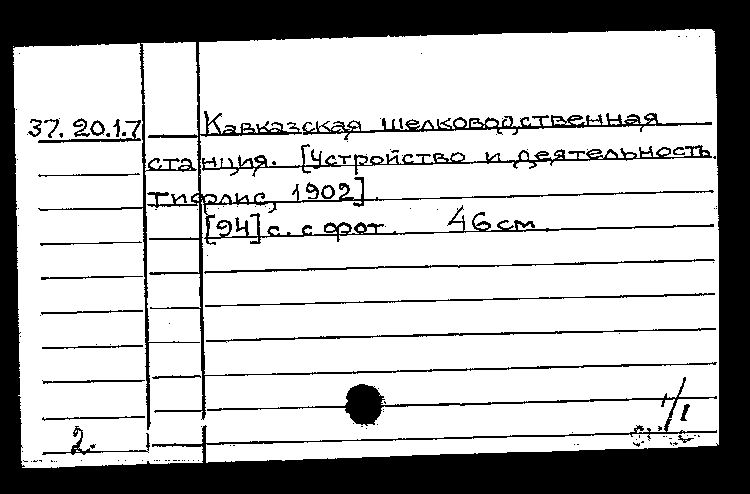 37.20.1.7 Кавказская шелководственная
станция. [Устройство и деятельность.
Тифлис, 1902].
[94] с. с фот. 46 см.
1/I
2.